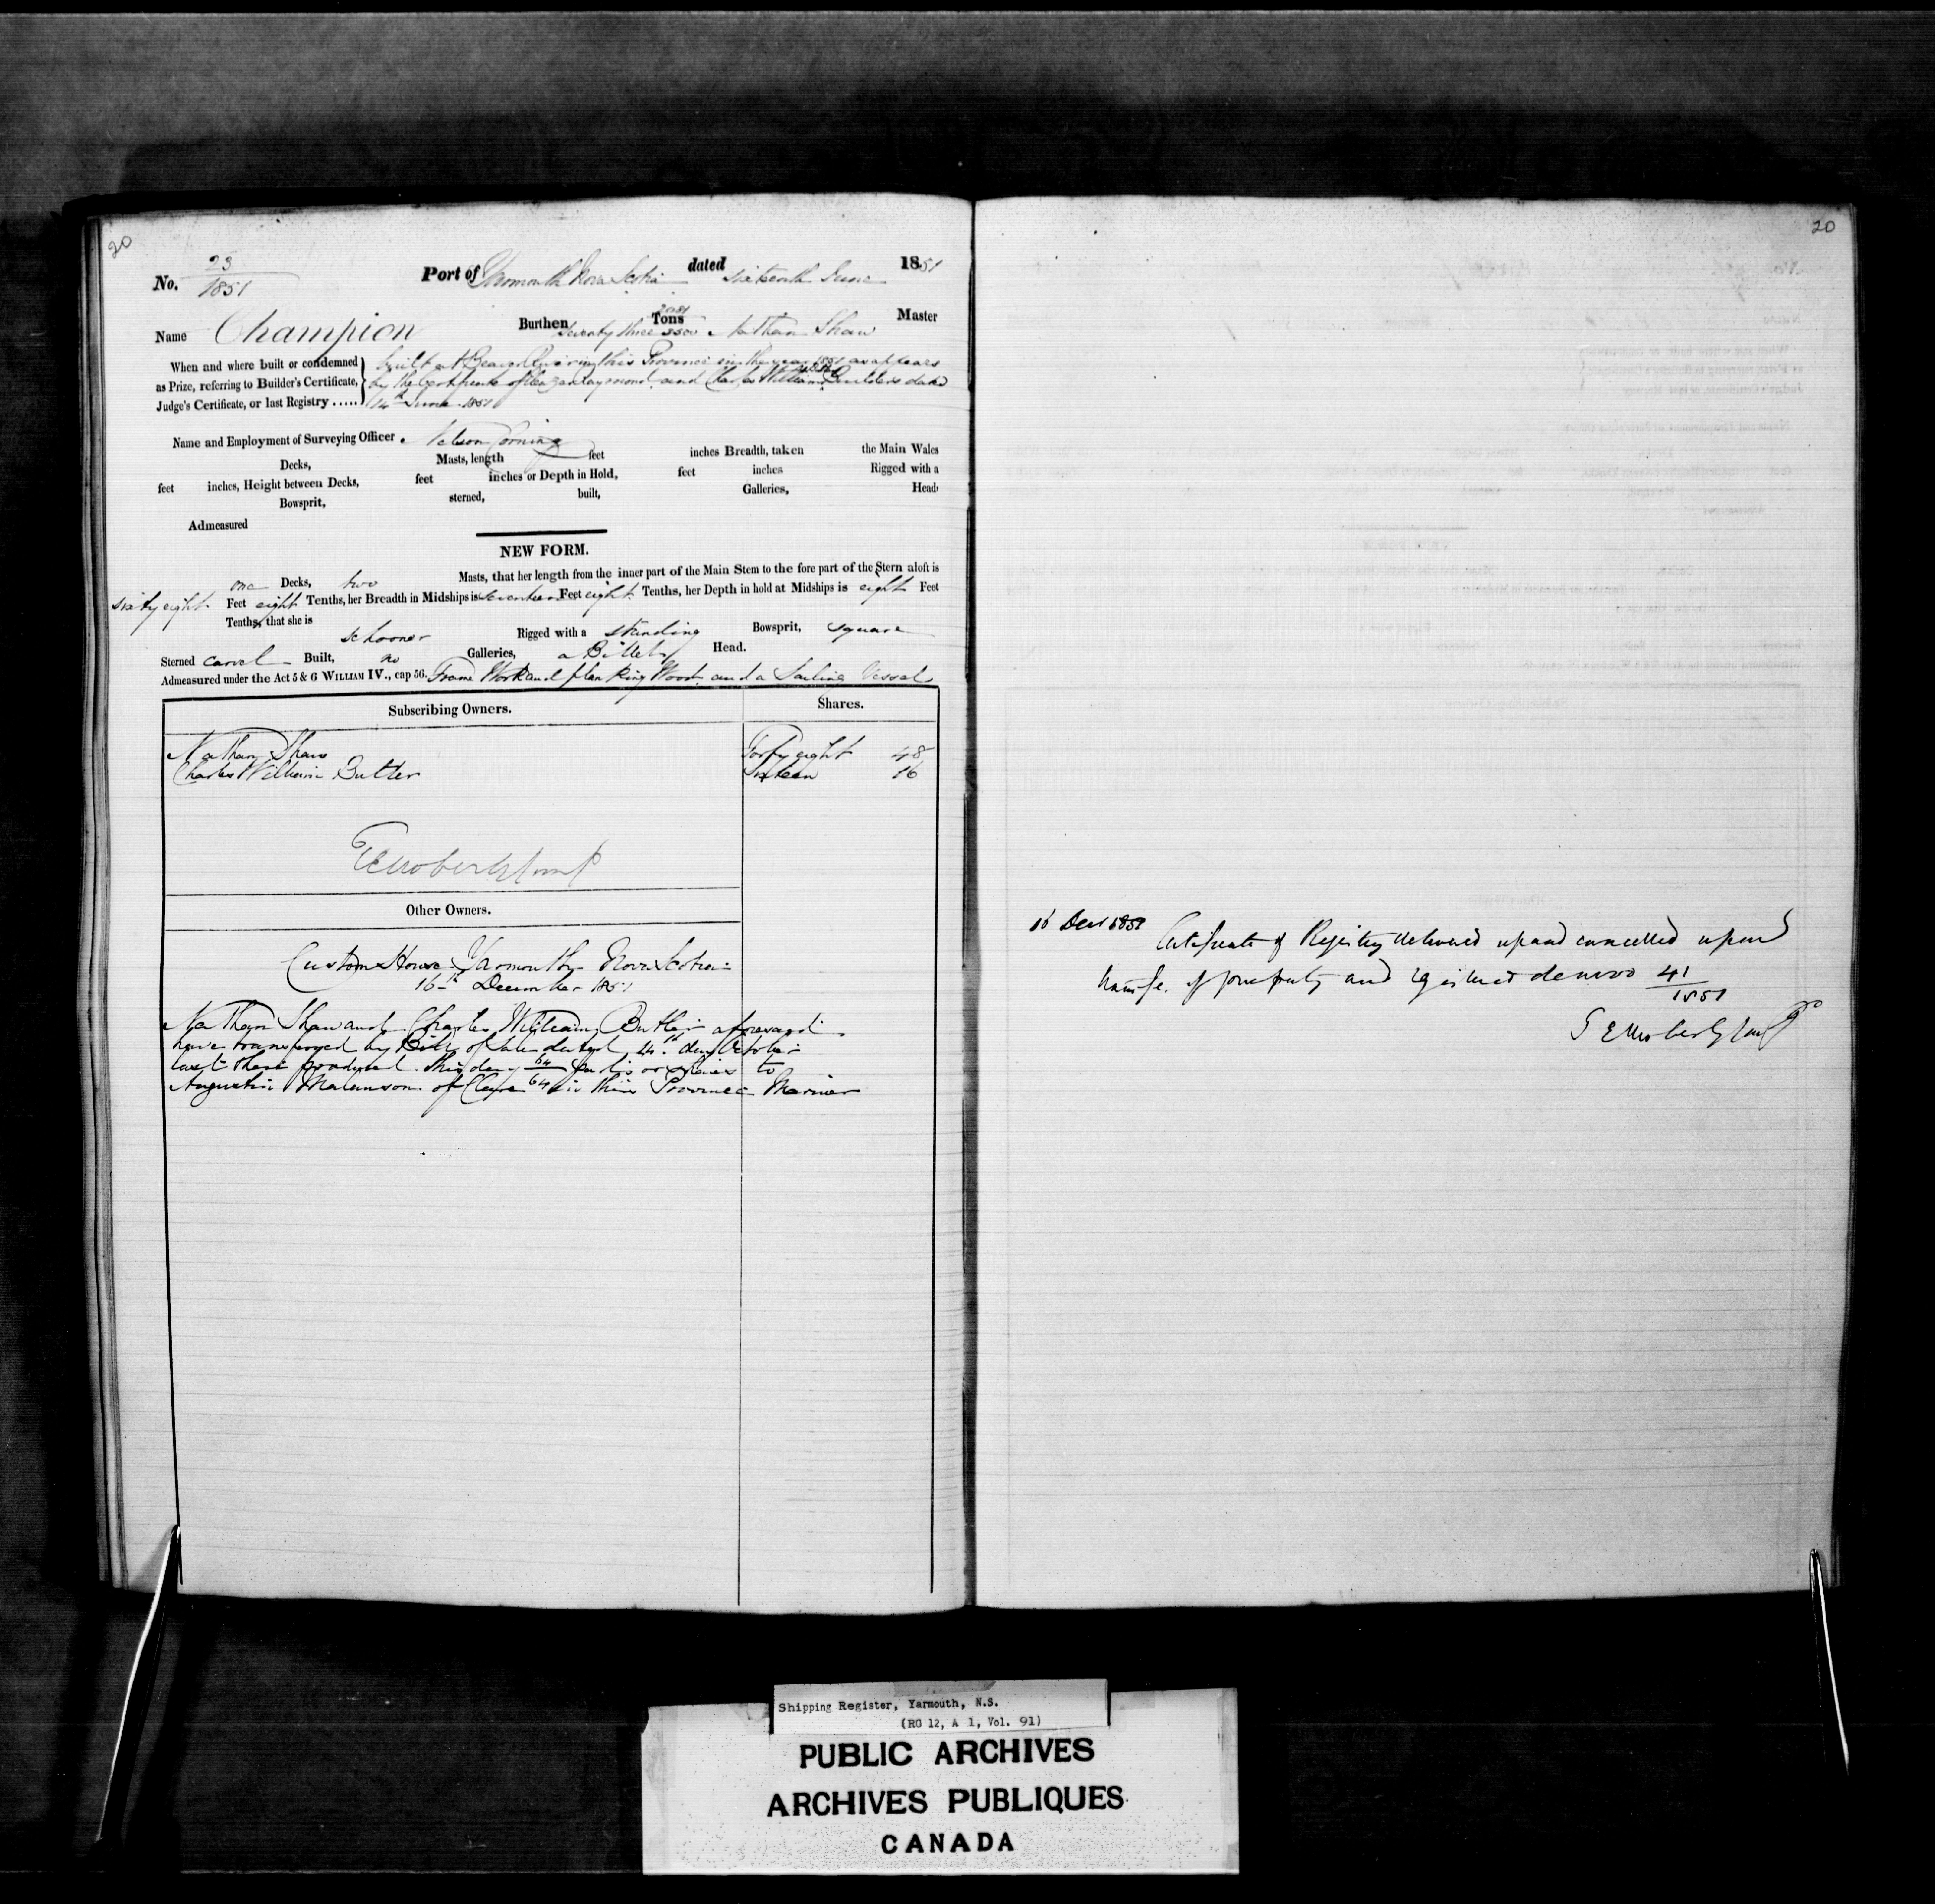 20
No. 23/1851 Port of Yarmouth Nova Scotia dated sixteenth June 1851
Name Champion Burthen seventy three 2081/3500 Tons Nathan Shaw Master
When and where built or condemned as Prize, referring to Builder's Certificate, Judge's Certificate, or last Registry .....
built at Beaver River in this Province in the year 1851 as appears
by the Certificate of Raymond and Charles William Builders dated
14th June 1851
Name and Employment of Surveying Officer. Nelson Corning
Decks, Masts, length feet inches Breadth, taken the Main Wales
feet inches, Height between Decks, feet inches or Depth in Hold, feet inches Rigged with a
Bowsprit, sterned, built, Galleries, Head,
Admeasured
NEW FORM.
one Decks, two Masts, that her length from the inner part of the Main Stem to the fore part of the Stern aloft is
sixty eight Feet eight Tenths, her Breadth in Midships is seventeen Feet eight Tenths, her Depth in hold at Midships is eight Feet
Tenths, that she is schooner Rigged with a standing Bowsprit, square
Sterned carvel Built, no Galleries, a Billet Head.
Admeasured under the Act 5 & 6 WILLIAM IV., cap 56. Frame Work and planking Wood and a Sailing Vessel
Subscribing Owners. Shares.
Nathan Shaw Forty eight 48
Charles William Butler Sixteen 16
Other Owners.
Custom House Yarmouth Nova Scotia
16th December 1851
Nathan Shaw and Charles William Butler aforesaid
have transferred by Bill of Sale dated 14th day October
last these produced this day 64/64 parts or shares to
Augustin Malanson of Clare in this Province Mariner
20
16 Decr 1851 Certificate of Registry delivered up and cancelled upon
transfer of property and registered denovo 41/1851
Shipping Register, Yarmouth, N.S.
(RG 12, A 1, Vol. 91)
PUBLIC ARCHIVES
ARCHIVES PUBLIQUES
CANADA